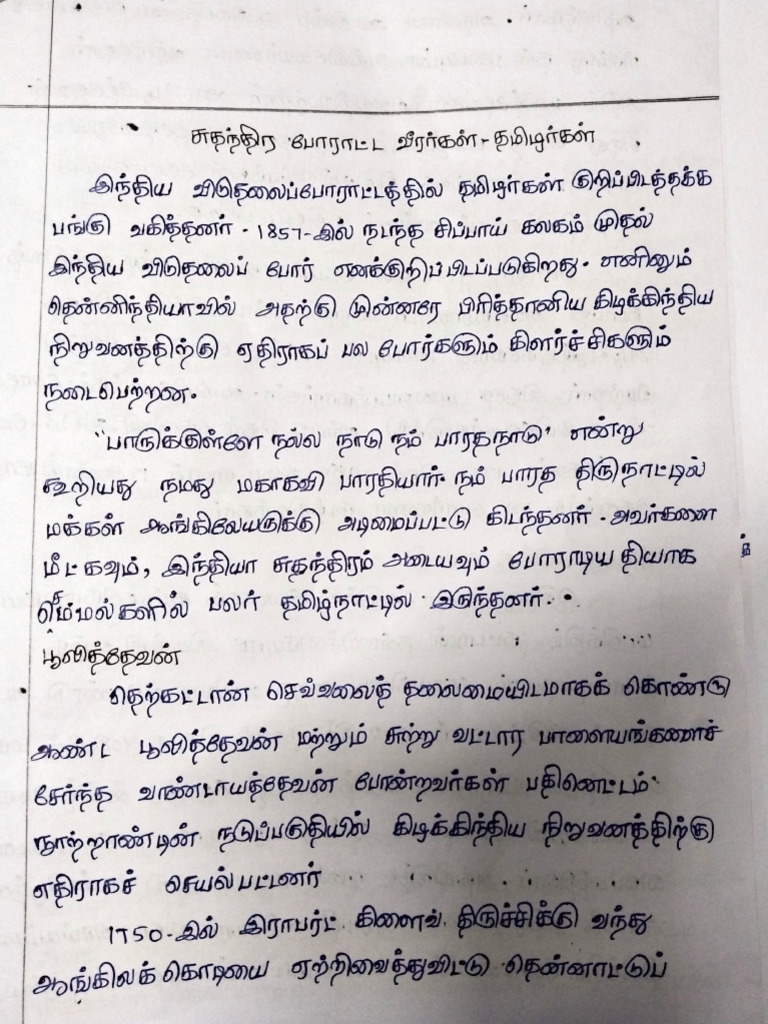 சுதந்திர போராட்ட வீரர்கள் - தமிழர்கள்
இந்திய விடுதலைப்போராட்டத்தில் தமிழர்கள் குறிப்பிடத்தக்க
பங்கு வகித்தனர். 1857-இல் நடந்த சிப்பாய் கலகம் முதல்
இந்திய விடுதலைப் போர் எனக்குறிப்பிடப்படுகிறது. எனினும்
தென்னிந்தியாவில் அதற்கு முன்னரே பிரித்தானிய கிழக்கிந்திய
நிறுவனத்திற்கு எதிராகப் பல போர்களும் கிளர்ச்சிகளும்
நடைபெற்றன.
"பாருக்குள்ளே நல்ல நாடு நம் பாரதநாடு" என்று
கூறியது நமது மகாகவி பாரதியார். நம் பாரத திருநாட்டில்
மக்கள் ஆங்கிலேயருக்கு அடிமைப்பட்டு கிடந்தனர். அவர்களை
மீட்கவும், இந்தியா சுதந்திரம் அடையவும் போராடிய தியாக
செம்மல்களில் பலர் தமிழ்நாட்டில் இருந்தனர்.
பூலித்தேவன்
தெற்கட்டான் செவ்வலைத் தலைமையிடமாகக் கொண்டு
ஆண்ட பூலித்தேவன் மற்றும் சுற்று வட்டார பாளையங்களைச்
சேர்ந்த வாண்டாயத்தேவன் போன்றவர்கள் பதினெட்டம்
நூற்றாண்டின் நடுப்பகுதியில் கிழக்கிந்திய நிறுவனத்திற்கு
எதிராகச் செயல்பட்டனர்
1750-இல் இராபர்ட் கிளைவ் திருச்சிக்கு வந்து
ஆங்கிலக் கொடியை ஏற்றிவைத்துவிட்டு தென்னாட்டுப்